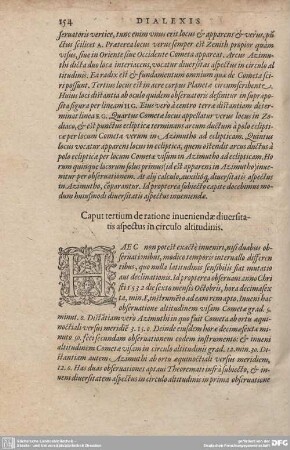 154 DIALEXIS
seruatoris vertice, tunc enim vnus erit locus & apparens & verus, pū
ctus scilicet A. Præterea locus verus semper est Zenith propior quàm
visus, siue in Oriente siue Occidente Cometa appareat. Arcus Azimu
thi dicta duo loca interiacens, vocatur diuersitas aspectus in circulo al
titudinis: Ea radix est & fundamentum omnium quæ de Cometa sci-
ri possunt. Tertius locus est in aere
Huius loci distantia ab oculo quidem obseruatoris definitur in supe appo-
sita figura per lineam H G. Eius verò à centro terræ distantiam deter-
minat linea E G. Quartus Cometæ locus appellatur verus locus in Zo-
diaco, & est punctus eclipticæ terminans arcum ductum à polo eclipti-
cæ per locum Cometæ verum in Azimutho ad eclipticam. Quintus
locus vocatur apparens locus in ecliptica, quem ostendit arcus ductus à
polo eclipticæ per locum Cometæ visum in Azimutho ad eclipticam. Ho
rum quinque locorum solus primus, id est apparens in Azimutho, inuenitur
per obseruationem. At alij calculo, auxilioque, diuersitatis aspectus
in Azimutho, comparantur. Id propterea subiecto capite docebimus modum
huiusmodi diuersitatis aspectus inueniendæ.
Caput tertium de ratione inueniendæ diuersita-
tis aspectus in circulo altitudinis.
HAEC non potest exactè inueniri, nisi duabus ob-
seruationibus, modico temporis interuallo differen
tibus, quo nulla latitudinis sensibilis siat mutatio
aut declinationis. Id propterea obseruauimus Christi
1532 die sexto mensis Octobris, hora decimasexta,
min. 8, instrumēto ad eam rem apto. Inueni hac
obseruatione altitudinem visam Cometæ grad. 9.
minut. 2. Distātiam verò Azimuthi in quo fuit Cometa ab ortu æqui-
noctiali versus meridiē 3. 23. 0. Deinde eiusdem horæ decimæsextæ mi-
nuto 50. feci secundam obseruationem eodem instrumento: & inueni
altitudinem Cometæ visam in circulo altitudinis grad. 12. min. 30. Di-
stantiam autem Azimuthi ab ortu æquinoctiali versus meridiem,
12. 0. Has duas obseruationes aptaui Theoremati infrà subiecto, & in-
ueni diuersitatem aspectus in circulo altitudinis in prima obseruatione